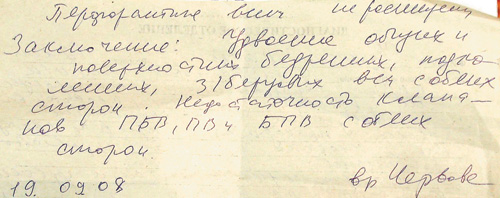 Перфорантные вены не расширены
Заключение: Удвоение общих и
поверхностных бедренных, подко
ленных, з/берцовых вен с обеих
сторон. Недостаточность клапа-
нов ПБВ, ПВ и БПВ с обеих
сторон.
19.09.08 вр